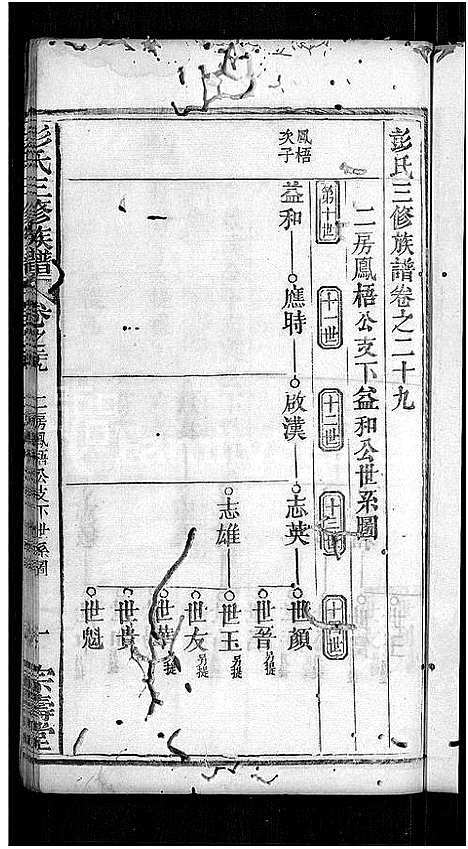 彭氏三修族譜卷之二十九
二房鳳梧公支下益和公世系圖
第十世
十一世
十二世
十三世
十四世
鳳梧次子
益和
應時
啟漢
志英
志雄
世顏
世音 另提
世玉 另提
世友 另提
世華 另提
世貴
世魁
彭氏三修族譜
卷之二十九
二房鳳梧公支下世系圖
一
壽堂